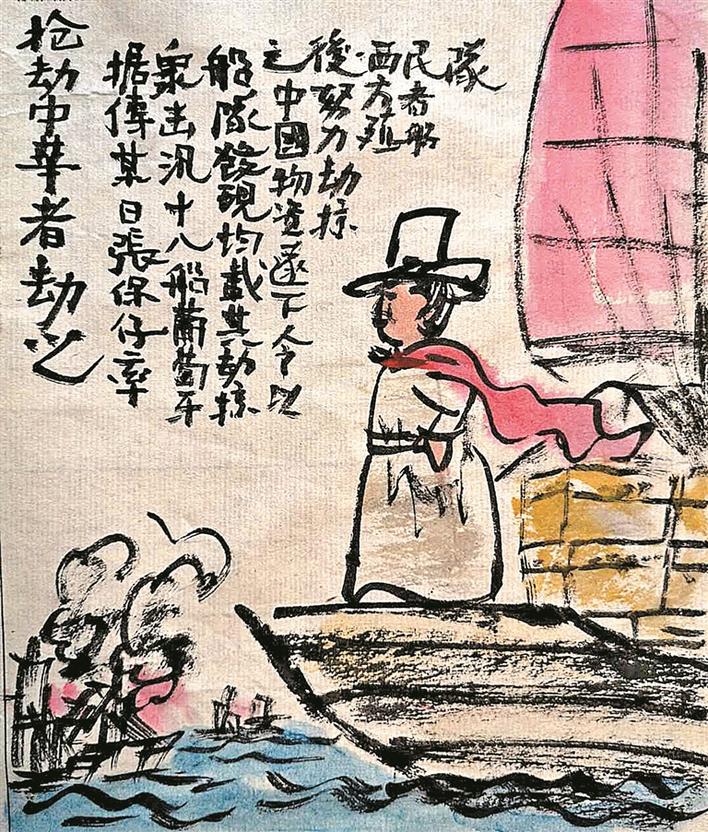 抢劫中華者劫之
据傳某日張保仔率
衆出汛十八船葡萄牙
船隊發現均載其劫掠
之中國物资遂下令以
後努力劫掠
西方殖
民者船
隊